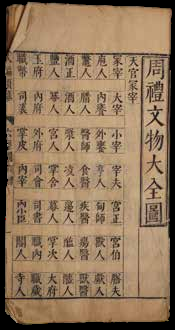 周禮文物大全圖
天官冢宰
冢宰 大宰 小宰 宰夫 宮正 宮伯 膳夫
庖人 內饔 外饔 亨人 甸師 獸人 䱷人
鼈人 腊人 醫師 食醫 疾醫 瘍醫 獸醫
酒正 酒人 漿人 凌人 籩人 醢人 醯人
鹽人 冪人 宮人 掌舍 幕人 掌次 大府
玉府 內府 外府 司會 司書 職內 職歲
職幣 司裘 掌皮 內宰 內小臣 閽人 寺人